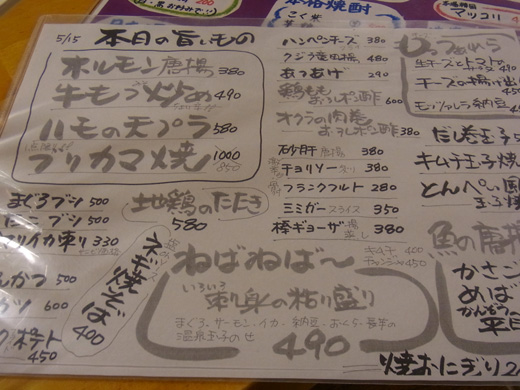 本格焼酎
マッコリ
5/15 本日の旨いもの
ホルモン唐揚 380
牛モツ炒め 490
ハモの天プラ 580
ブリカマ焼 1000
850
まぐろブツ 500
たこブツ 500
330
んかつ 500
カツ 600
ポテト
450
地鶏のたたき
580
ネギ焼そば
400
ハンペンチーズ 380
クジラ竜田揚 480
あつあげ 290
鶏もも
おろしポン酢 600
オクラの肉巻
おろしポン酢 380
砂肝 唐揚 380
チョリソー 380
フランクフルト 280
ミミガースライス 350
棒ギョーザ 380
ねばねば〜
キムチ 400
チャンジャ 450
いろいろ
刺身の粘り盛り
まぐろ、サーモン・イカ・納豆・おくら・長芋の
温泉玉子のせ
490
生チーズとトマト
チーズの揚げ出し
450
モッツァレラ納豆
だし巻玉子
キムチ玉子焼
とんぺい風
玉子焼
魚の唐揚
かさご
めばる
かんぞう
平目
焼おにぎり